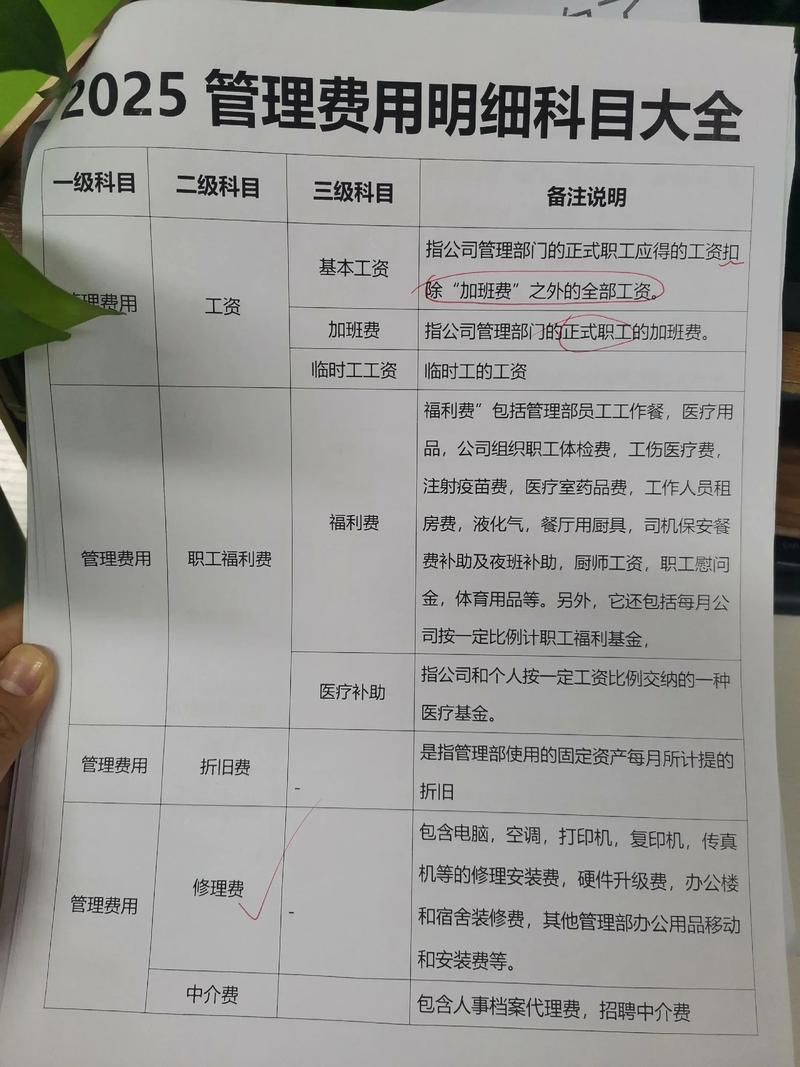 2025 管理费用明细科目大全
一级科目 二级科目 三级科目 备注说明
管理费用 工资 基本工资 指公司管理部门的正式职工应得的工资扣
除“加班费”之外的全部工资。
加班费 指公司管理部门的正式职工的加班费。
临时工工资 临时工的工资
管理费用 职工福利费 福利费 福利费”包括管理部员工工作餐，医疗用
品，公司组织职工体检费，工伤医疗费，
注射疫苗费，医疗室药品费，工作人员租
房费，液化气，餐厅用厨具，司机保安餐
费补助及夜班补助，厨师工资，职工慰问
金，体育用品等。另外，它还包括每月公
司按一定比例计职工福利基金，
医疗补助 指公司和个人按一定工资比例交纳的一种
医疗基金。
管理费用 折旧费 - 是指管理部使用的固定资产每月所计提的
折旧
管理费用 修理费 - 包含电脑，空调，打印机，复印机，传真
机等的修理安装费，硬件升级费，办公楼
和宿舍装修费，其他管理部办公用品移动
和安装费等。
中介费 包含人事档案代理费，招聘中介费